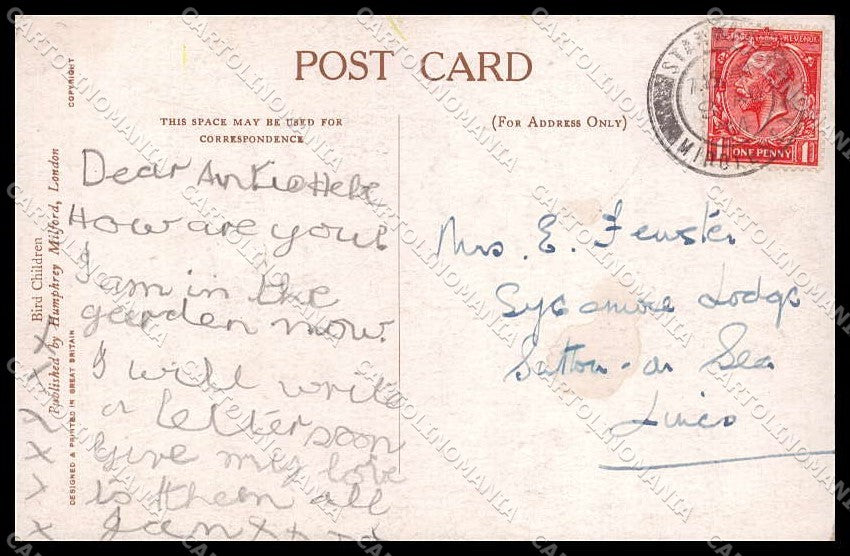 POST CARD
THIS SPACE MAY BE USED FOR
CORRESPONDENCE
(FOR ADDRESS ONLY)
COPYRIGHT
Bird Children
Published by Humphrey Milford, London
DESIGNED & PRINTED IN GREAT BRITAIN
Dear
How are you
I am in the
garden now.
I will write
a letter soon
Give my love
to them all
Jan x x x x
x x x x x x
Mrs. E. Fenster
Sycamore Lodge
Sutton-on Sea
Lincs
REVENUE
ONE PENNY
CARTOLINOMANIA